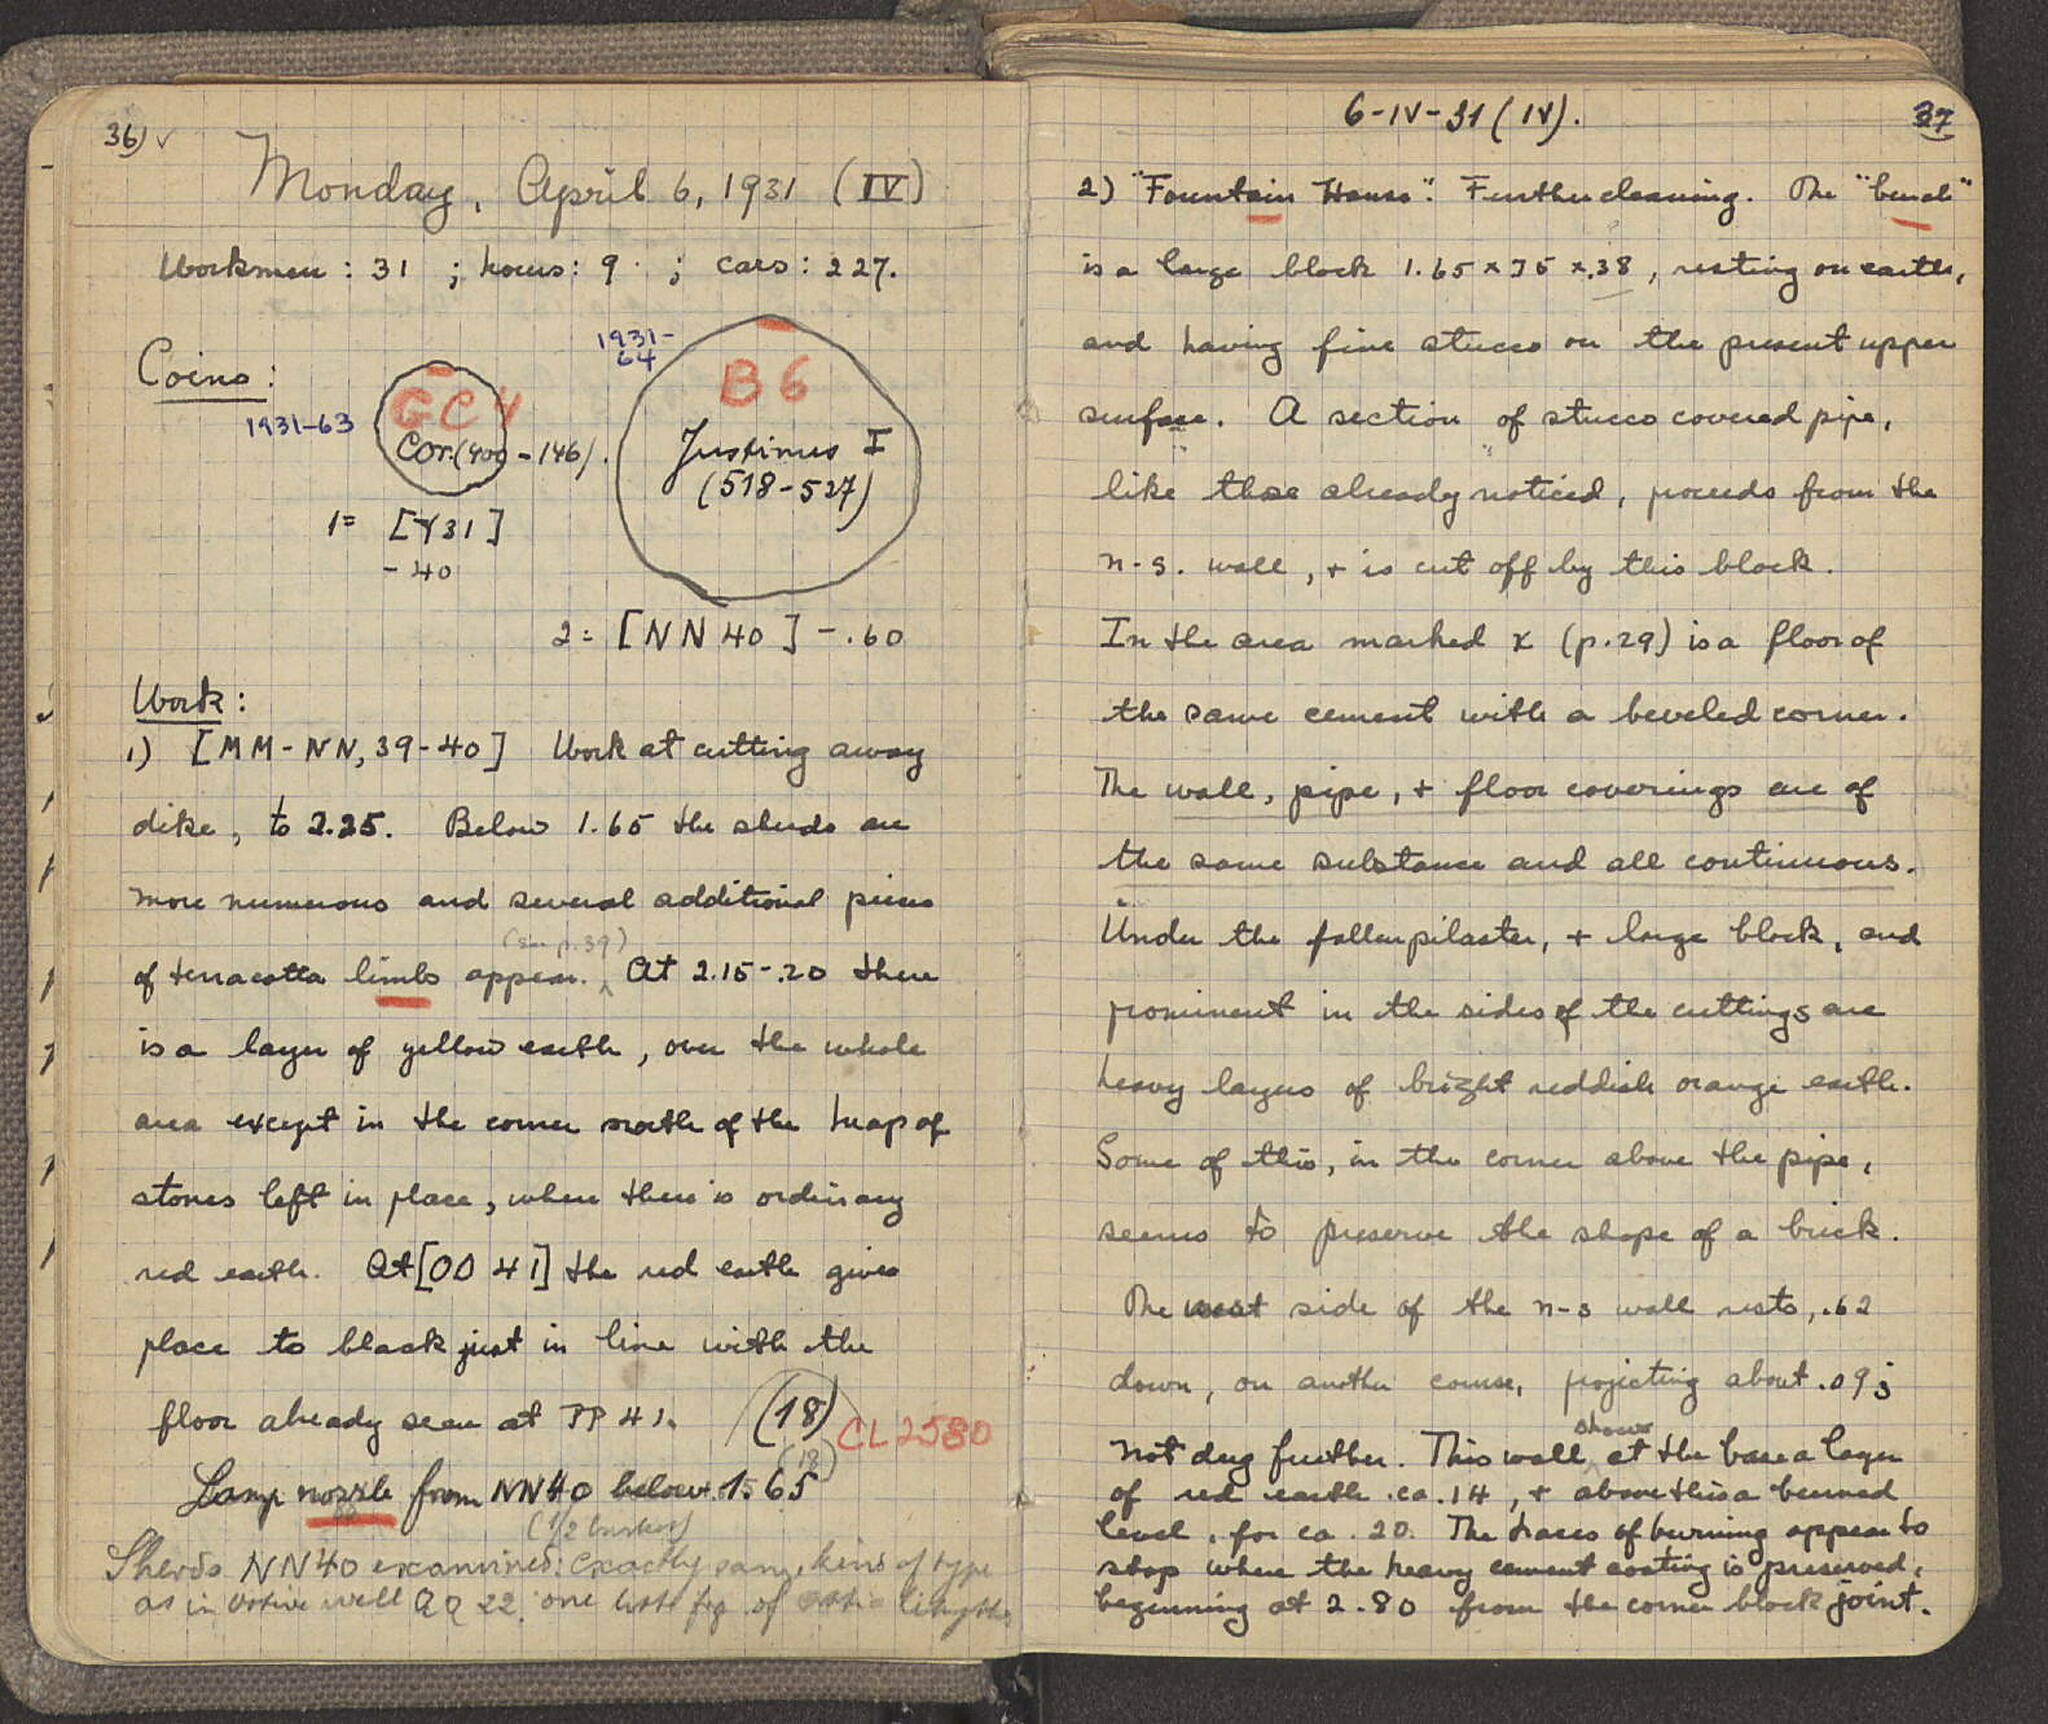 36) ✓
Monday, April 6, 1931 (IV)
Workmen: 31 ; hours: 9 ; cars: 227.
Coins:
1931-63
GC4
Cor. (400-146).
1= [YY31]
-40
1931-
64
B6
Justinus I
(518-527)
2= [NN 40] -.60
Work:
1) [MM-NN, 39-40] Work at cutting away
dike, to 2.25. Below 1.65 the sherds are
more numerous and several additional pieces
(see p. 39)
of terracotta limbs appear. ^ At 2.15-.20 there
is a layer of yellow earth, over the whole
area except in the corner north of the heap of
stones left in place, where there is ordinary
red earth. At [OO 41] the red earth gives
place to black just in line with the
floor already seen at PP 41. (18) CL 2580
(18)
Lamp nozzle from NN40 below 1.65
(1/2 basket)
Sherds NN40 examined: exactly same kind of type
as in votive well QQ 22. one late frg. of lekythos
6-IV-31 (IV).
37
2) "Fountain House". Further cleaning. The "bench"
is a large block 1.65 x 75 x .38, resting on earth,
and having fine stucco on the present upper
surface. A section of stucco covered pipe,
like those already noticed, proceeds from the
n-s. wall, + is cut off by this block.
In the area marked x (p.29) is a floor of
the same cement with a beveled corner.
The wall, pipe, + floor coverings are of
the same substance and all continuous.
Under the fallen pilaster, + large block, and
prominent in the sides of the cuttings are
heavy layers of bright reddish orange earth.
Some of this, in the corner above the pipe,
seems to preserve the shape of a brick.
The west side of the n-s wall rests, .62
down, on another course, projecting about .09;
shows
not dug further. This wall ^ at the base a layer
of red earth ca. 14, + above this a burned
level, for ca. 20. The traces of burning appear to
stop where the heavy cement coating is preserved,
beginning at 2.80 from the corner block joint.